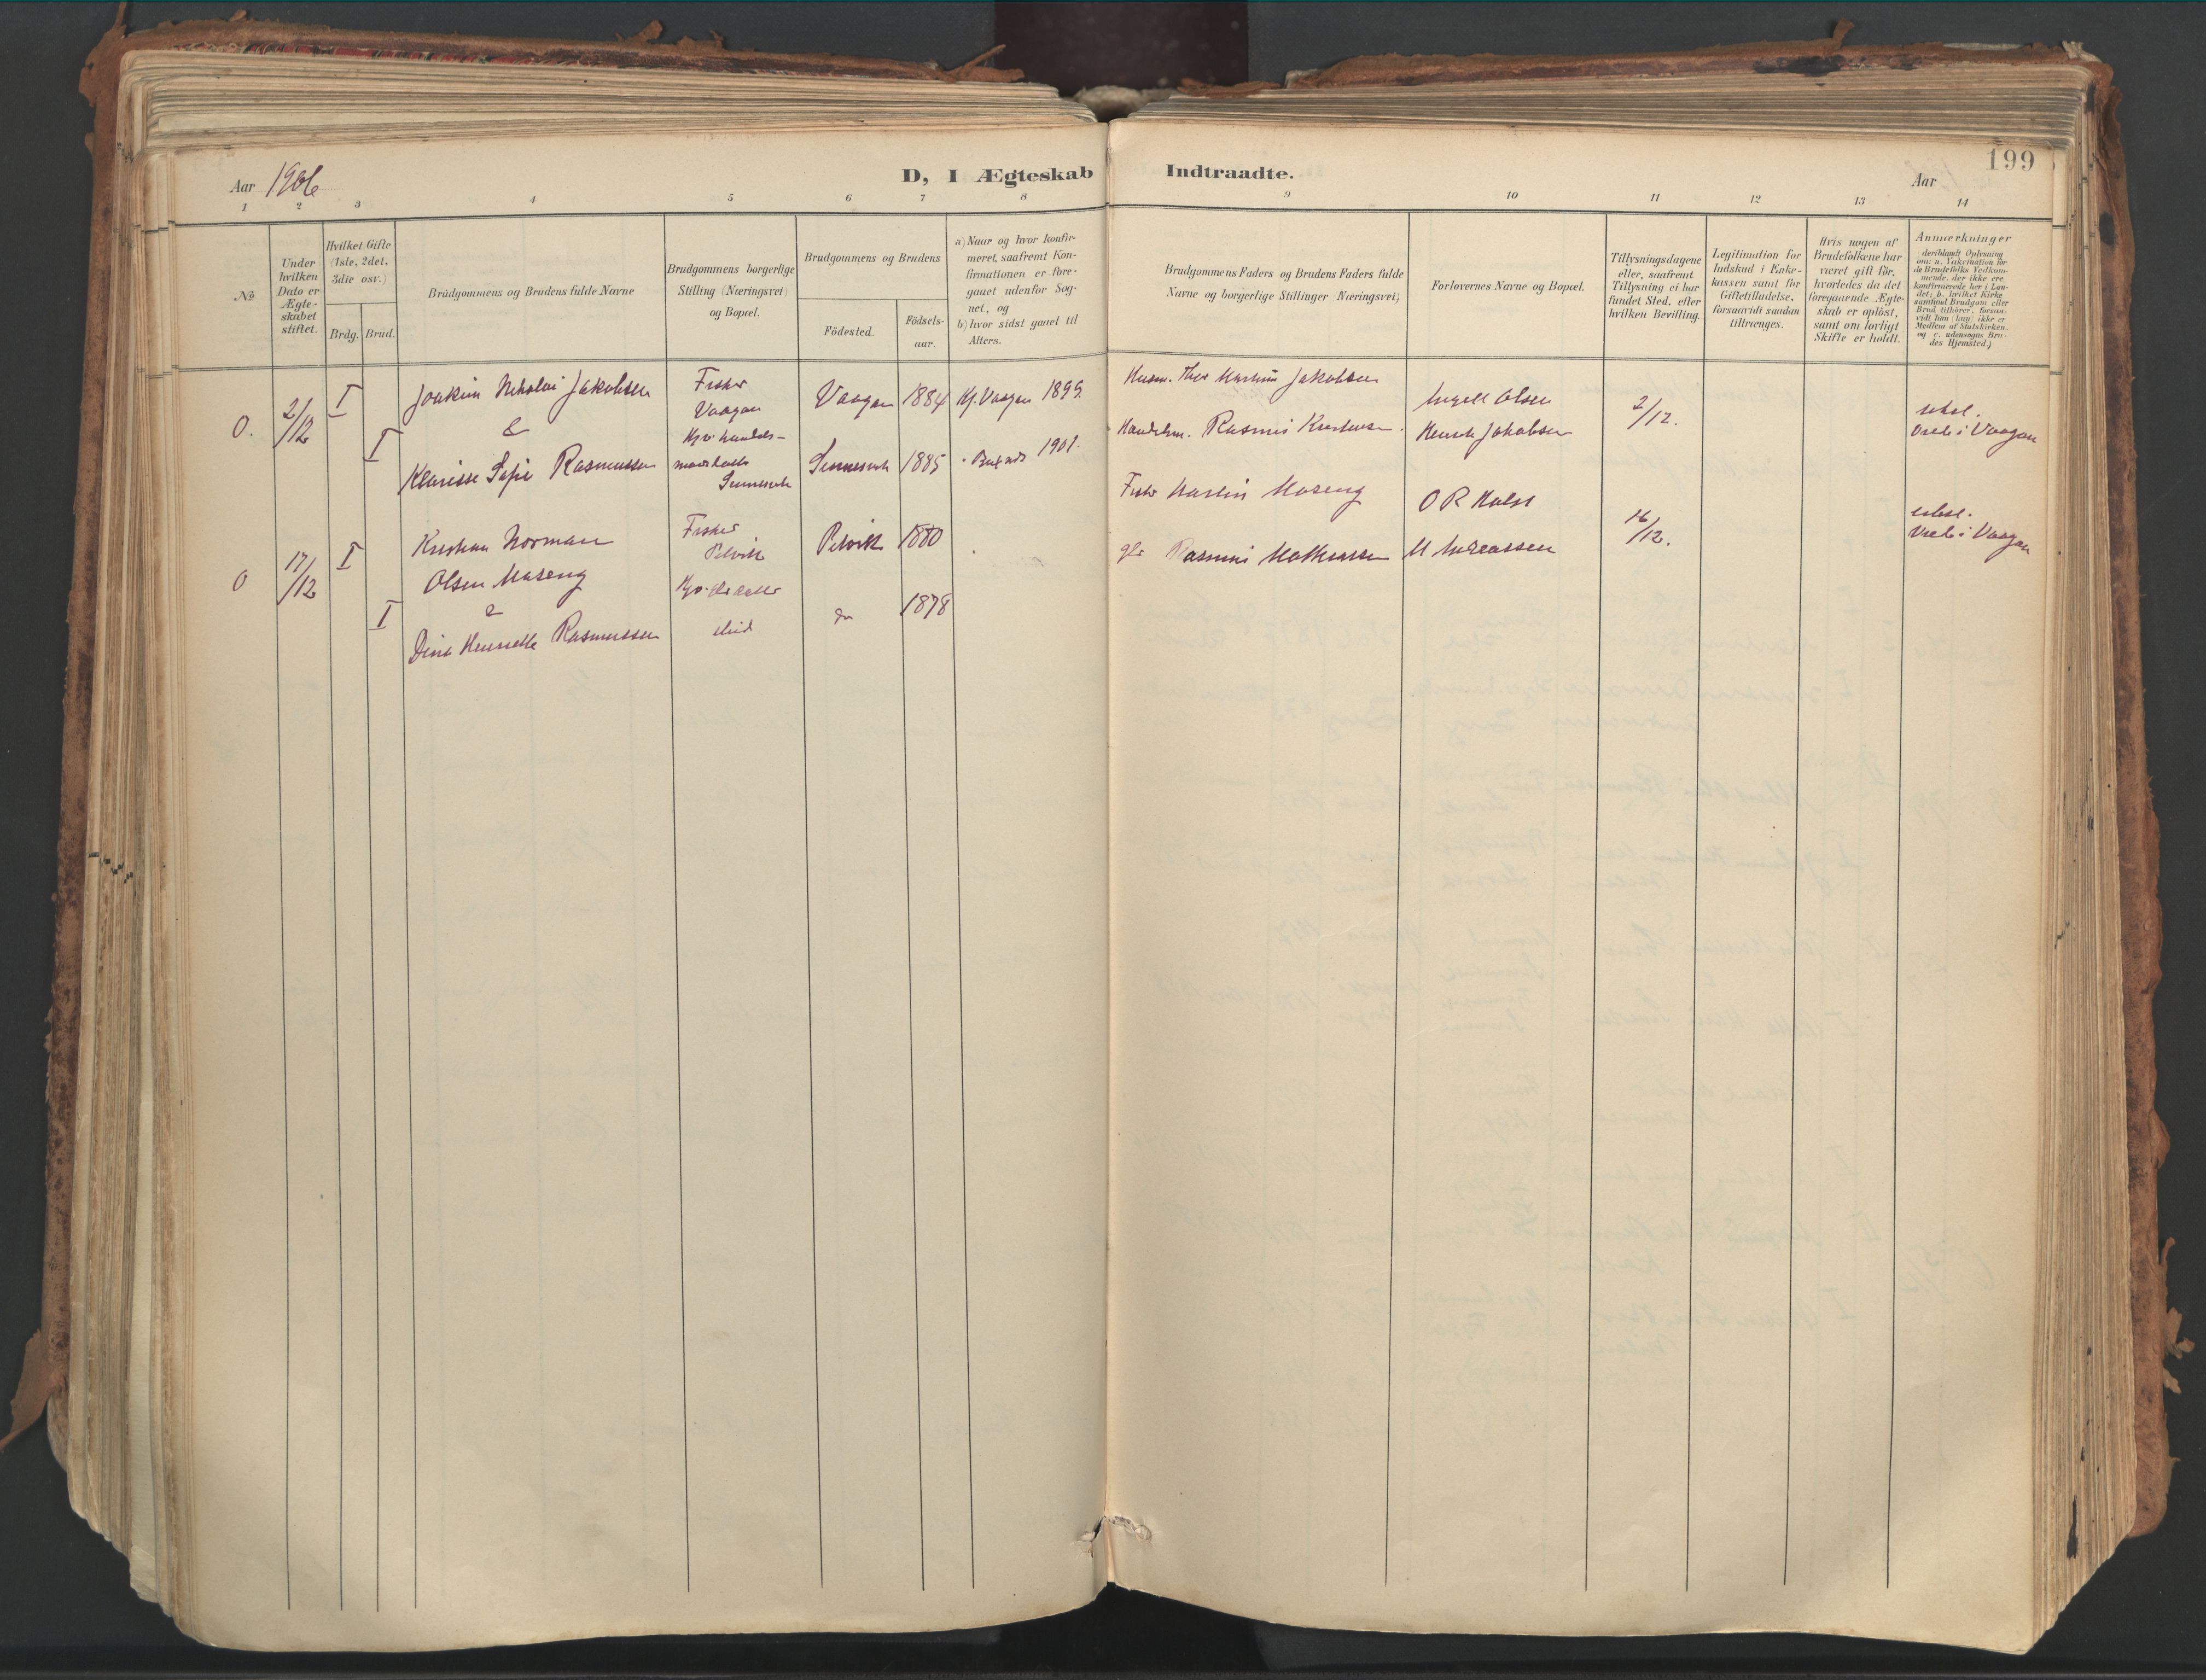 199
Aar 1906
D, I Ægteskab Indtraadte.
Aar
1 2 3 4 5 6 7 8 9 10 11 12 13 14
No
Under
hvilken
Dato er
Ægte-
skabet
stiftet.
Hvilket Gifte
(1ste, 2det,
3die osv.)
Brdg. Brud.
Brudgommens og Brudens fulde Navne
Brudgommens borgerlige
Stilling (Næringsvei)
og Bopæl.
Brudgommens og Brudens
Födested.
Födsels-
aar.
a) Naar og hvor konfir-
meret, saafremt Kon-
firmationen er fore-
gaaet udenfor Sog-
net, og
b) hvor sidst gaaet til
Alters.
Brudgommens Faders og Brudens Faders fulde
Navne og borgerlige Stillinger Næringsvei)
Forlovernes Navne og Bopæl.
Tillysningsdagene
eller, saafremt
Tillysning ei har
fundet Sted, efter
hvilken Bevilling.
Legitimation for
Indskud i Enke-
kassen samt for
Giftetilladelse,
forsaavidt saadan
tiltrænges.
Hvis nogen af
Brudefolkene har
været gift för,
hvorledes da det
foregaaende Ægte-
skab er oplöst,
samt om lovligt
Skifte er holdt.
Anmærkninger
deriblandt Oplysning
om: a. Vakcination for
de Brudefolks Vedkom-
mende, der ikke ere
konfirmerede her i Lan-
det; b. hvilket Kirke
samfund Brudgom eller
Brud tilhörer, forsaa-
vidt han (hun) ikke er
Medlem af Statskirken,
og c. udensogns Bru-
des Hjemsted.)
O. 2/12 I Joakim Nikolai Jakobsen
&
I Klarisse Sofie Rasmussen
Fisker
Vaagan
Vaagan 1884 Kf. Vaagan 1899.
1885 1901.
Husm. Thor Martin Jakobsen
Handelsm. Rasmus
Ingell Olsen
Henrik Jakobsen
2/12.
viede i Vaagan
O 17/12 I Kristian Norman
Olsen Maseng
&
I Dina Henrikke Rasmussen
Fisker
Petvik
Petvik 1880
do 1878
Fisker Martin Maseng
Rasmus Mathiassen
O R Holst
M Andreassen
16/12.
viede i Vaagan